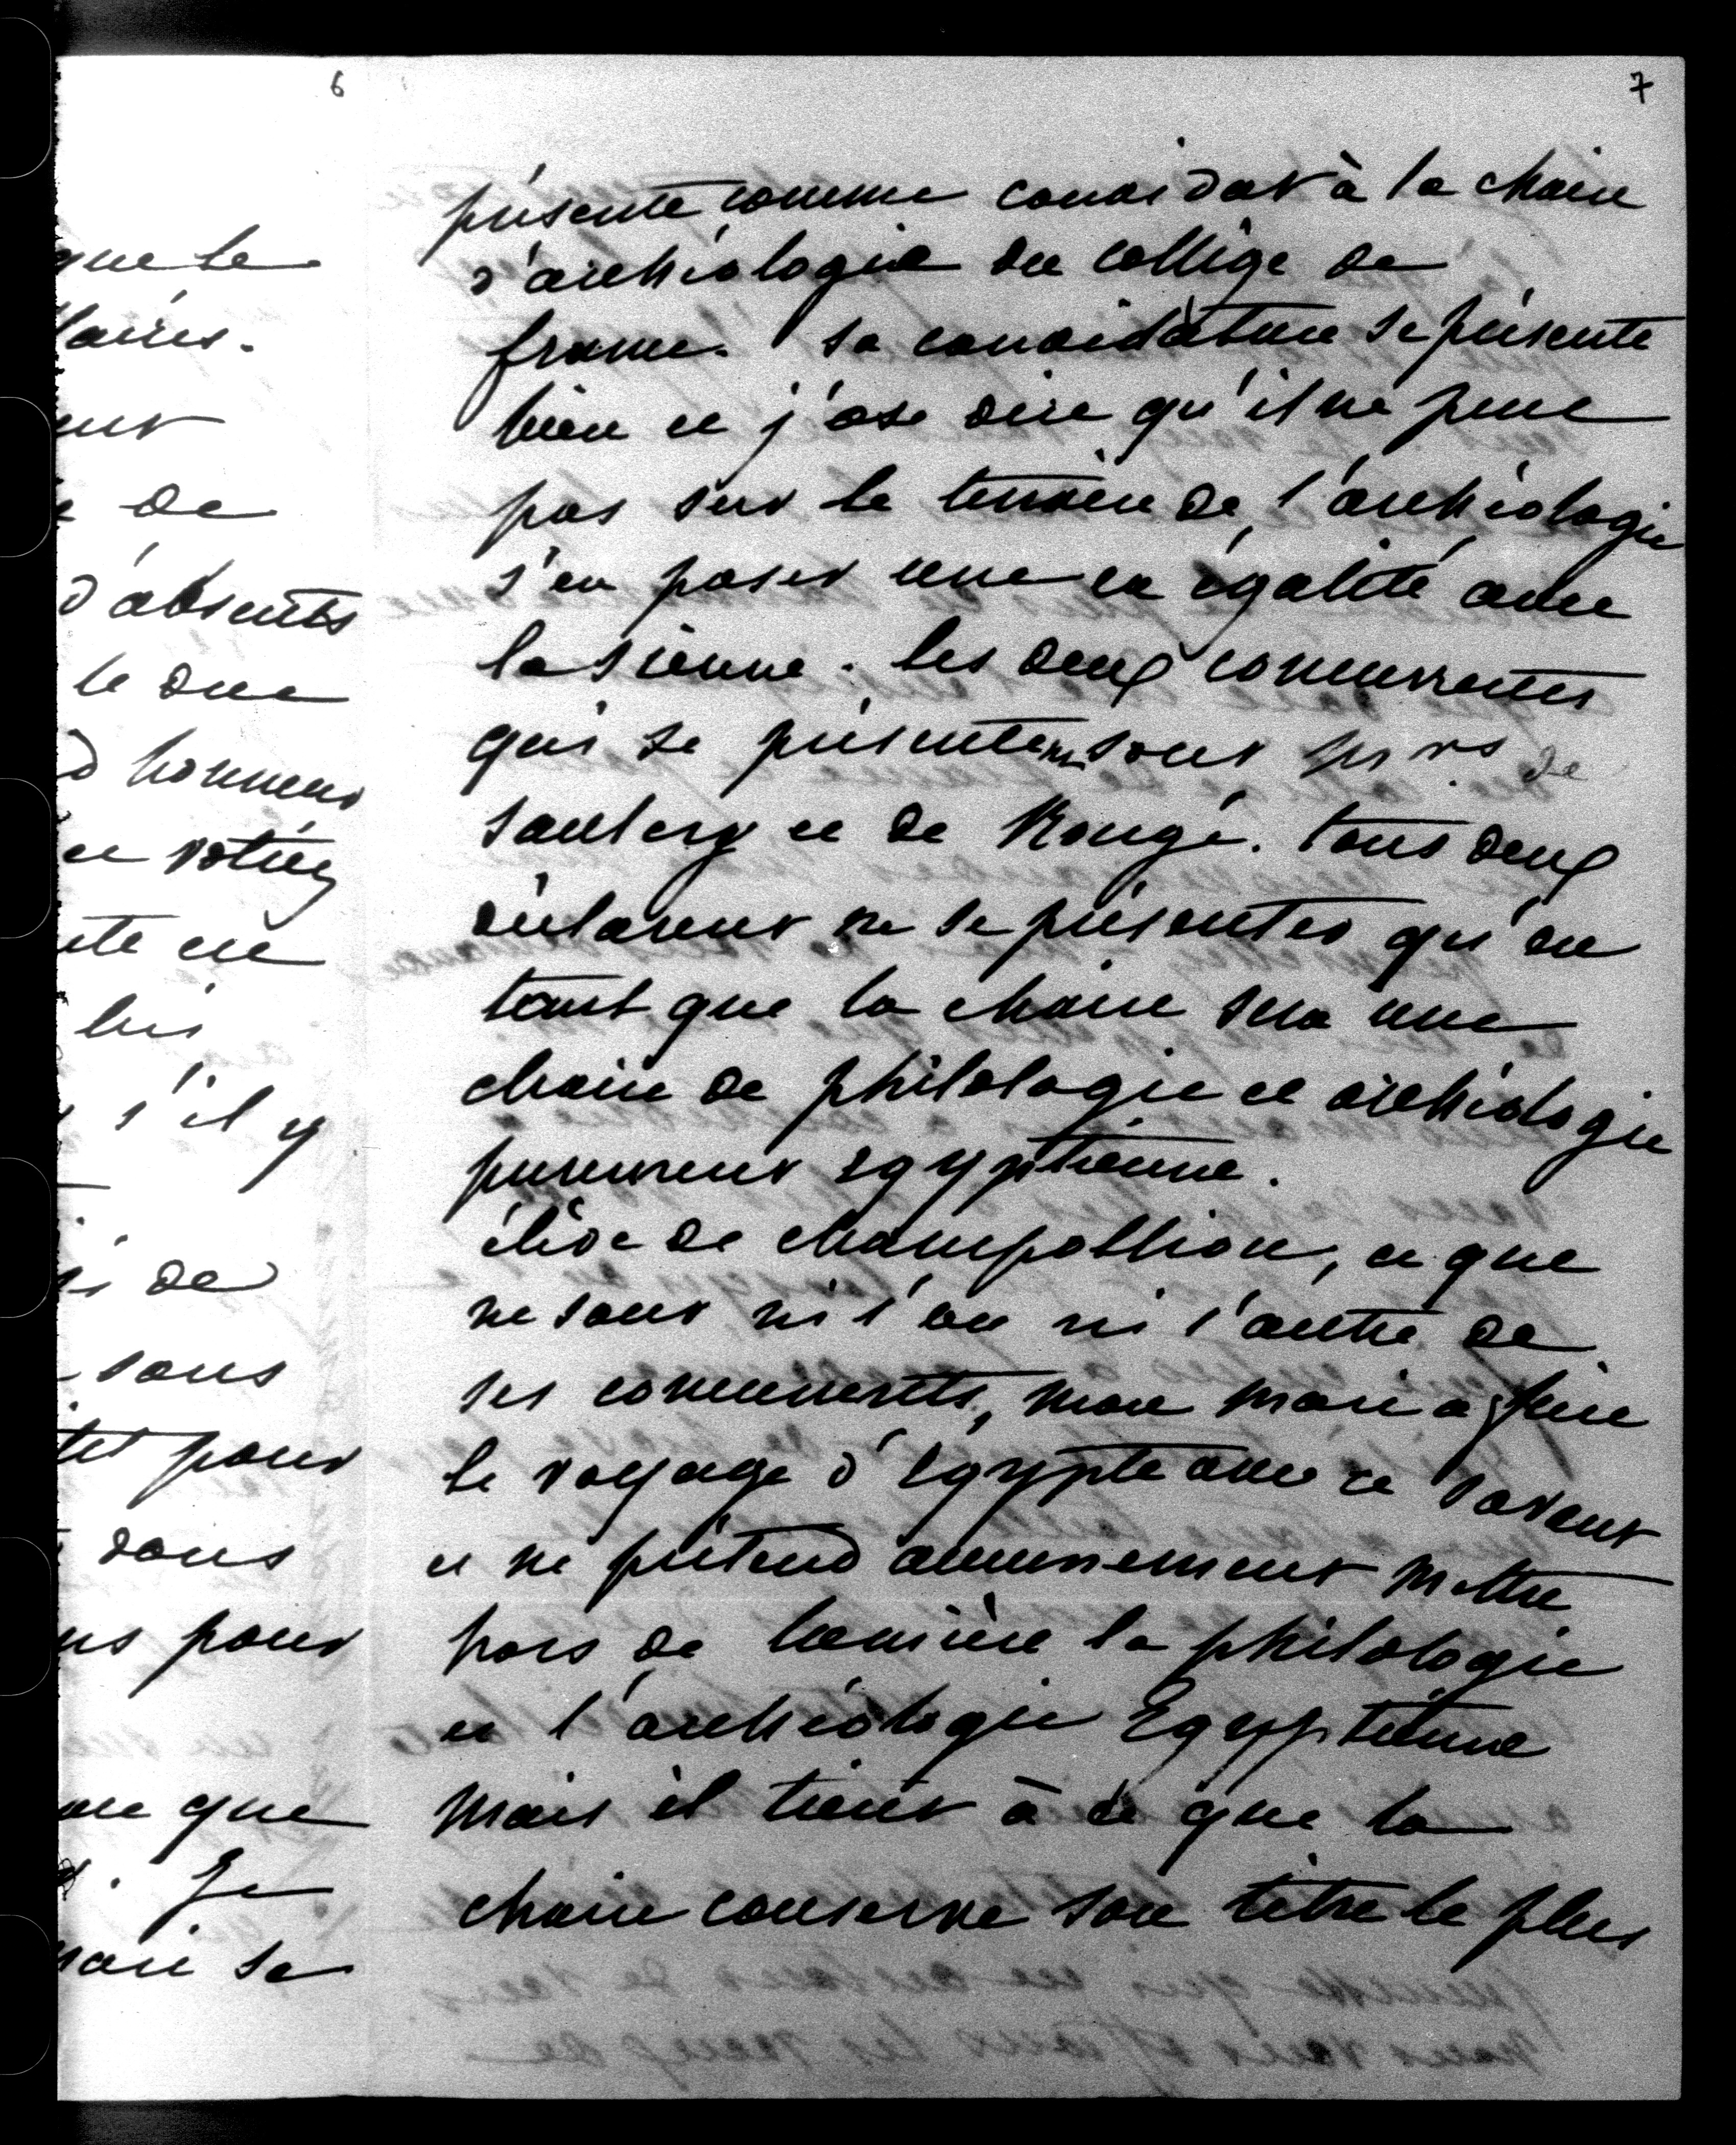 6
que le
laires.
ent
de
d'absents
le duc
d'honneur
et votiez
ute en
lui
s'il y
si de
sous
tet pour
dans
us pour
que
Je
mari se
7
présente comme candidat à la chaire
d'archéologie du collège de
france. Sa candidature se présente
bien et j'ose dire qu'il ne peut
pas sur le terrein de l'archéologie
s'en poser une en égalité avec
la sienne. les deux concurrents
qui se présentent sont Mrs de
Saulcy et de Rougé. tous deux
déclarent ne se présenter qu'en
tant que la chaire sera une
chaire de philologie et archéologie
purement egyptienne.
élève de champollion, ce que
ne sont ni l'un ni l'autre de
ses concurrents, mon mari a fait
le voyage d'Egypte avec ce savant
et ne prétend aucunement mettre
hors de lumière la philologie
et l'archéologie Egyptienne
mais il tient à ce que la
chaire conserve son titre le plus